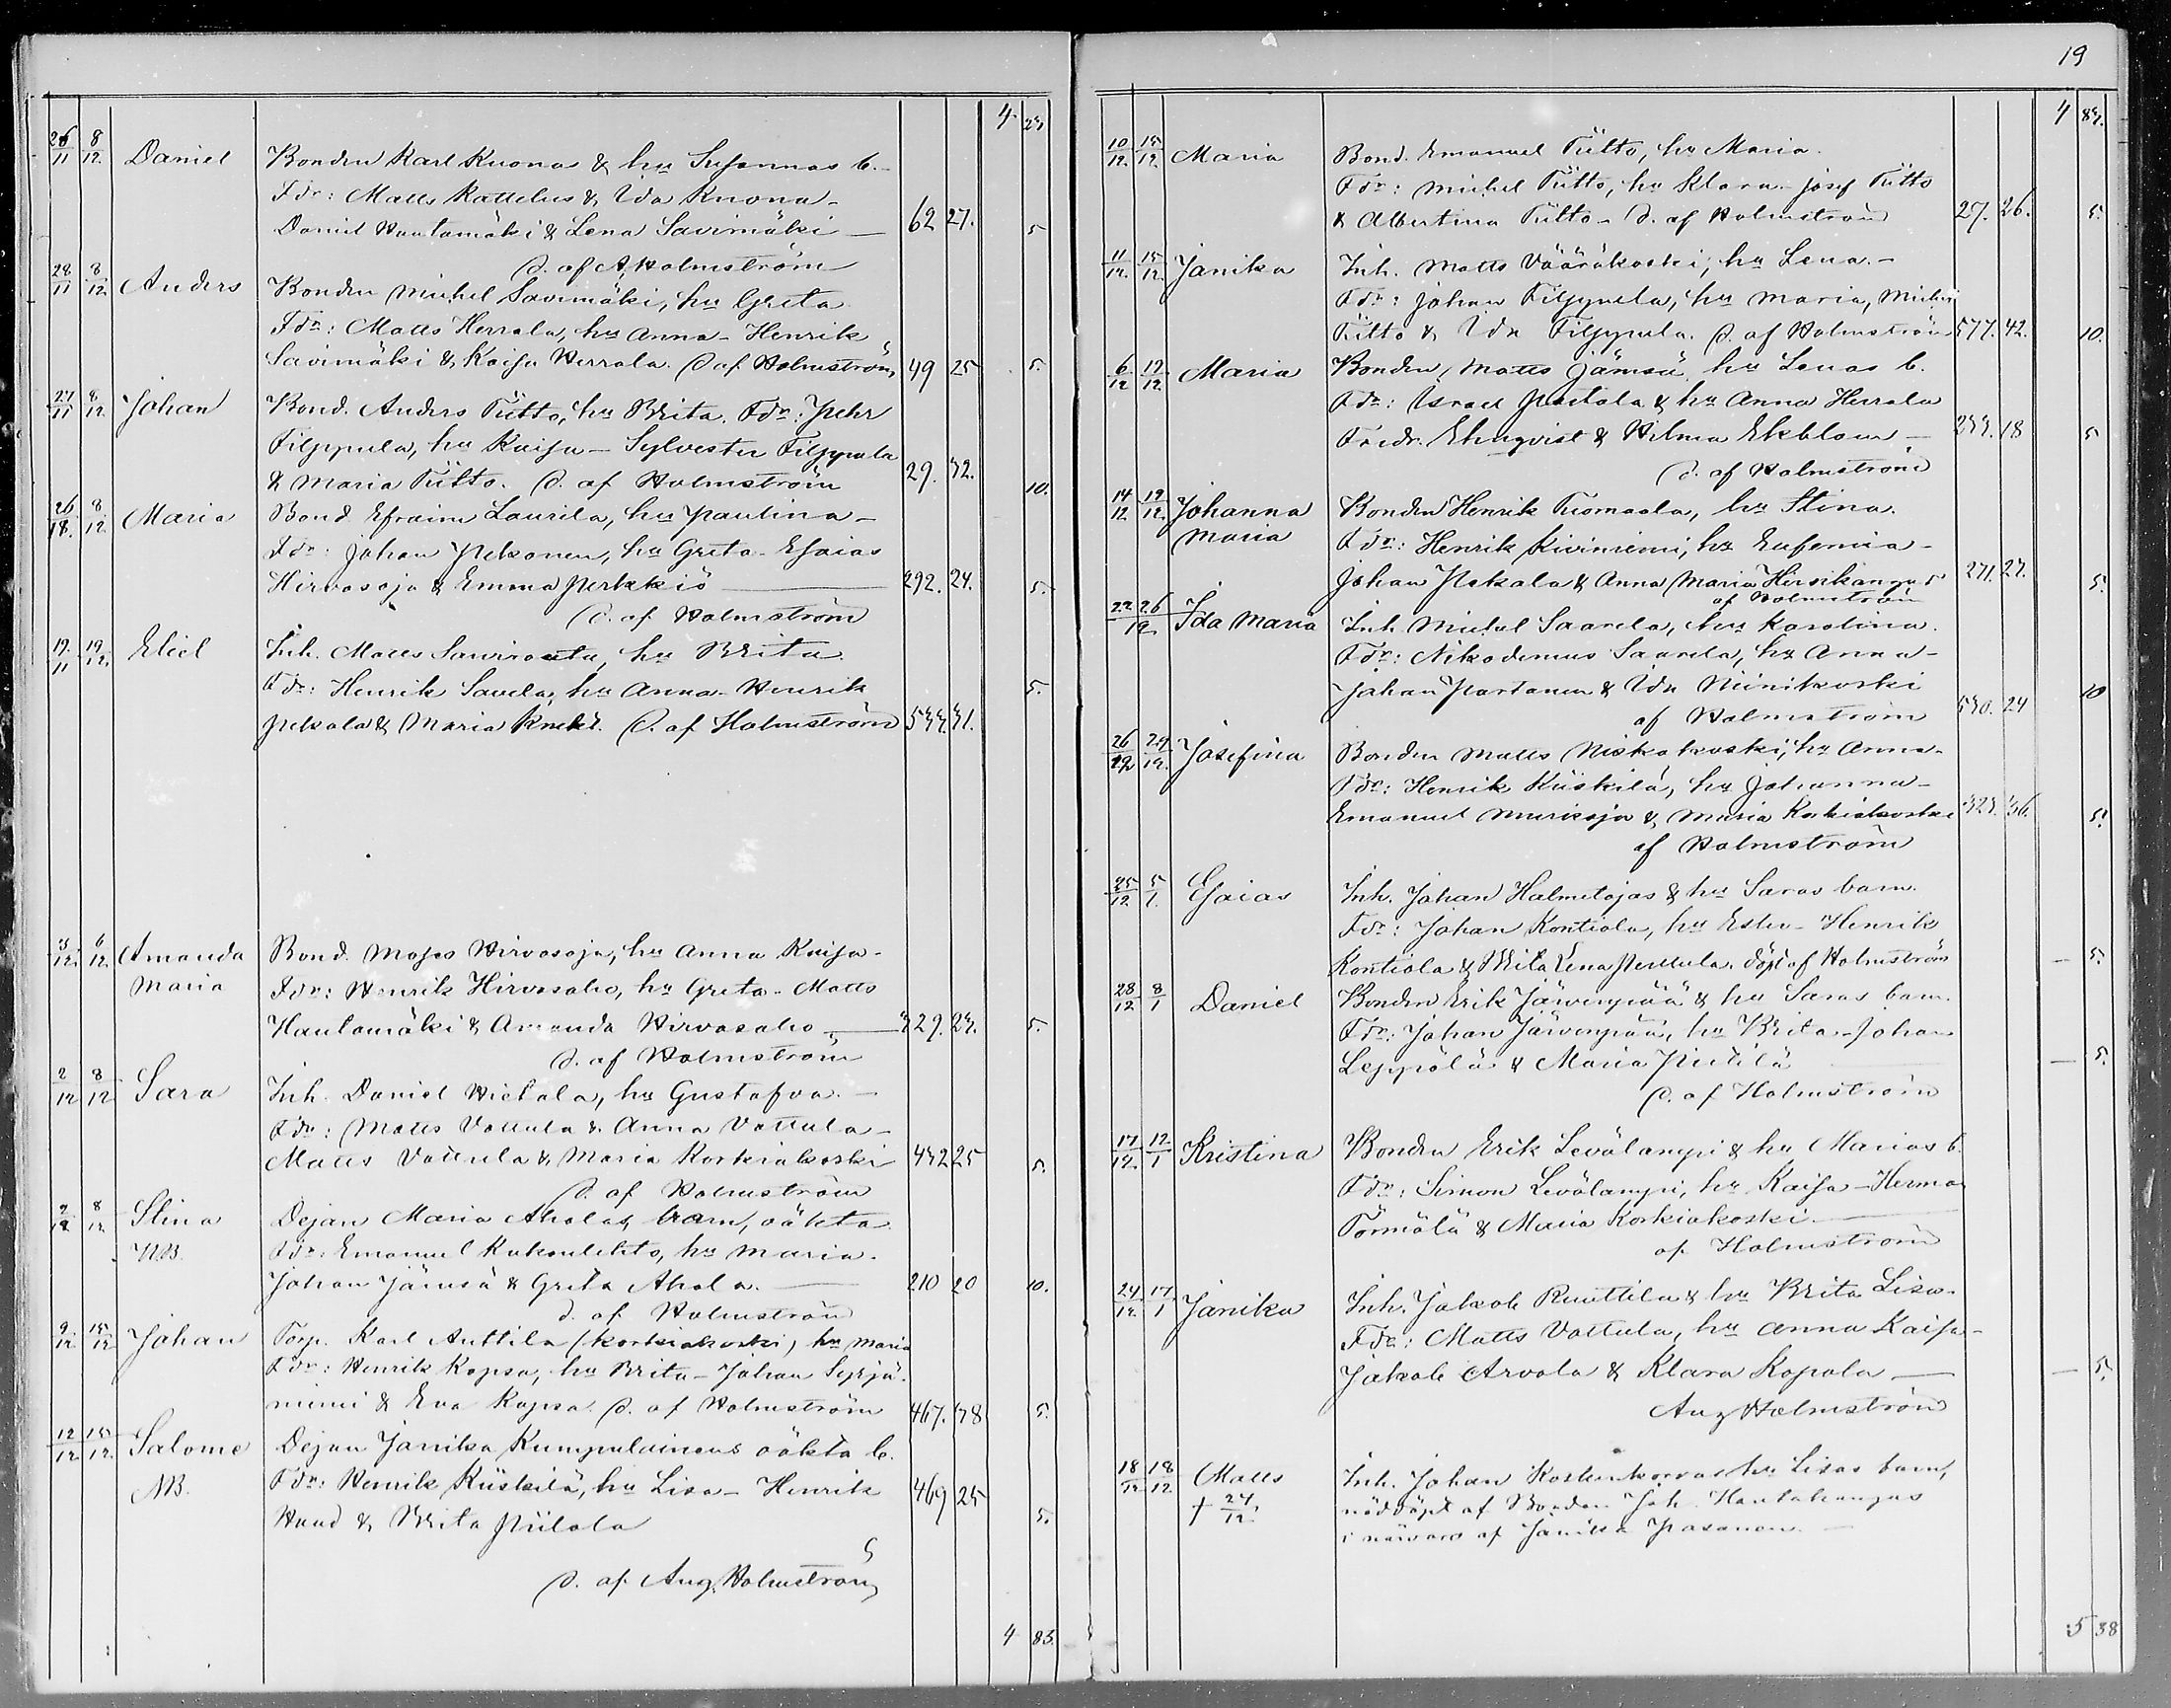 4 23.
26/11 8/12. Daniel Bonden Karl Kuona & hu Susannas b.
Fdr: Matts Kattelus & Ida Kuona -
Daniel Hautamäki & Lena Savimäki — 62 27. 5
D. af A. Holmström
28/11 8/12 Anders Bonden Michel Savimäki, hu Greta
Fdr: Matts Herrala, hu Anna - Henrik
Savimäki & Kaisa Herrala. D af Holmström 49 25 5.
27/11 8/12 Johan Bond. Anders Tütto, hu Brita. Fdr: Pehr
Filppula, hu Kaisa - Sylvester Filppula
& Maria Tütto. D. af Holmström 29. 32. 10.
26/18. 8/12 Maria Bond Efraim Laurila, hu Paulina -
Fdr: Johan Pekonen, hu Greta - Esaias
Hirvasoja & Emma Perkkiö — 292. 24. 5.
D. af Holmström
19/11 19/12. Eliel Inh. Matts Savirouta, hu Brita.
Fdr: Henrik Savela, hu Anna - Henrik 5.
Pekala & Maria Knekt. D. af Holmström 533. 31.
3/12. 6/12 Amanda Bond. Moses Hirvasoja, hu Anna Kaisa -
Maria Fdr: Henrik Hirvasaho, hu Greta - Matts
Hautamäki & Amanda Hirvasaho — 329. 23. 5.
D. af Holmström
2/12 8/12 Sara Inh. Daniel Hietala, hu Gustafva. —
Fdr: Matts Vattula & Anna Vattula -
Matts Vattula & Maria Korkiakoski 432 25 5.
D. af Holmström
2/12 8/12 Stina Dejan Maria Aholas barn, oäkta
NB. Fdr: Emanuel Kukonlehto, hu Maria -
Johan Jämsä & Greta Ahola. — 210 20 10.
d. af Holmström
9/12 15/12 Johan Torp. Karl Anttila (Korkiakoski) hu Maria
Fdr: Henrik Kopsa, hu Brita - Johan Syrjä-
niemi & Eva Kopsa. D. af Holmström 467. 38 5.
12/12 15/12. Salome Dejan Janika Kumpulainens oäkta b.
NB. Fdr: Henrik Küskilä, hu Lisa - Henrik 469 25
Hund & Brita Piilola 5.
D. af Aug. Holmström
4 83.
19
4 83.
10/12. 15/12. Maria Bond. Emanuel Tütto, hu Maria.
Fdr: Michel Tütto, hu Klara - Josef Tütto
& Albertina Tütto - D. af Holmström 27. 26. 5.
11/12. 15/12. Janika Inh. Matts Vääräkoski, hu Lena. -
Fdr: Johan Filppula, hu Maria, Michel
Tütto & Ida Filppula. D. af Holmström 577. 42. 10.
6/12 19/12 Maria Bonden Matts Jämsä, hu Lenas b.
Fdr: Israel Paitala & hu Anna Herrala
Fredr. Ehnqvist & Hilma Ekblom — 233. 18 5
D. af Holmström
14/12 19/12. Johanna Bonden Henrik Tuomaala, hu Stina.
Maria Fdr: Henrik Kiviniemi, hu Eufemia -
Johan Pekala & Anna Maria Hirsikangas 271. 27. 5.
af Holmström
22 26/12. Ida Maria Inh. Michel Saarela, hu Karolina.
Fdr: Nikodemus Saarela, hu Anna -
Johan Partanen & Ida Niinikoski 530. 24 10
af Holmström
26/12 29/12. Josefina Bonden Matts Niskakoski, hu Anna -
Fdr: Henrik Küskilä, hu Johanna -
Emanuel Murikoja & Maria Korkiakoski 323. 36. 5.
af Holmström
25/12 5/1. Esaias Inh. Johan Halmetojas & hu Saras barn.
Fdr: Johan Kontiola, hu Ester - Henrik
Kontiola & Brita Lena Perttula. döpt af Holmström — 5.
28/12 8/1 Daniel Bonden Erik Järvenpää & hu Saras barn.
Fdr: Johan Järvenpää, hu Brita - Johan
Leppälä & Maria Pietilä — 5.
D. af Holmström
17/12. 12/1 Kristina Bonden Erik Levälampi & hu Marias b.
Fdr: Simon Levälampi, hu Kaisa - Herman
Törmälä & Maria Korkiakoski. —
af Holmström
24/12 17/1 Janika Inh. Jakob Ruuttila & hu Brita Lisa -
Fdr: Matts Vattula, hu Anna Kaisa -
Jakob Arvola & Klara Kopola — — 5.
Aug Holmström
18/12 18/12 Matts Inh. Johan Koskenkorvas hu Lisas barn,
† 24/12. nöddöpt af Bonden Joh. Hautakangas
i närvaro af Janika Pasanen. —
5 38